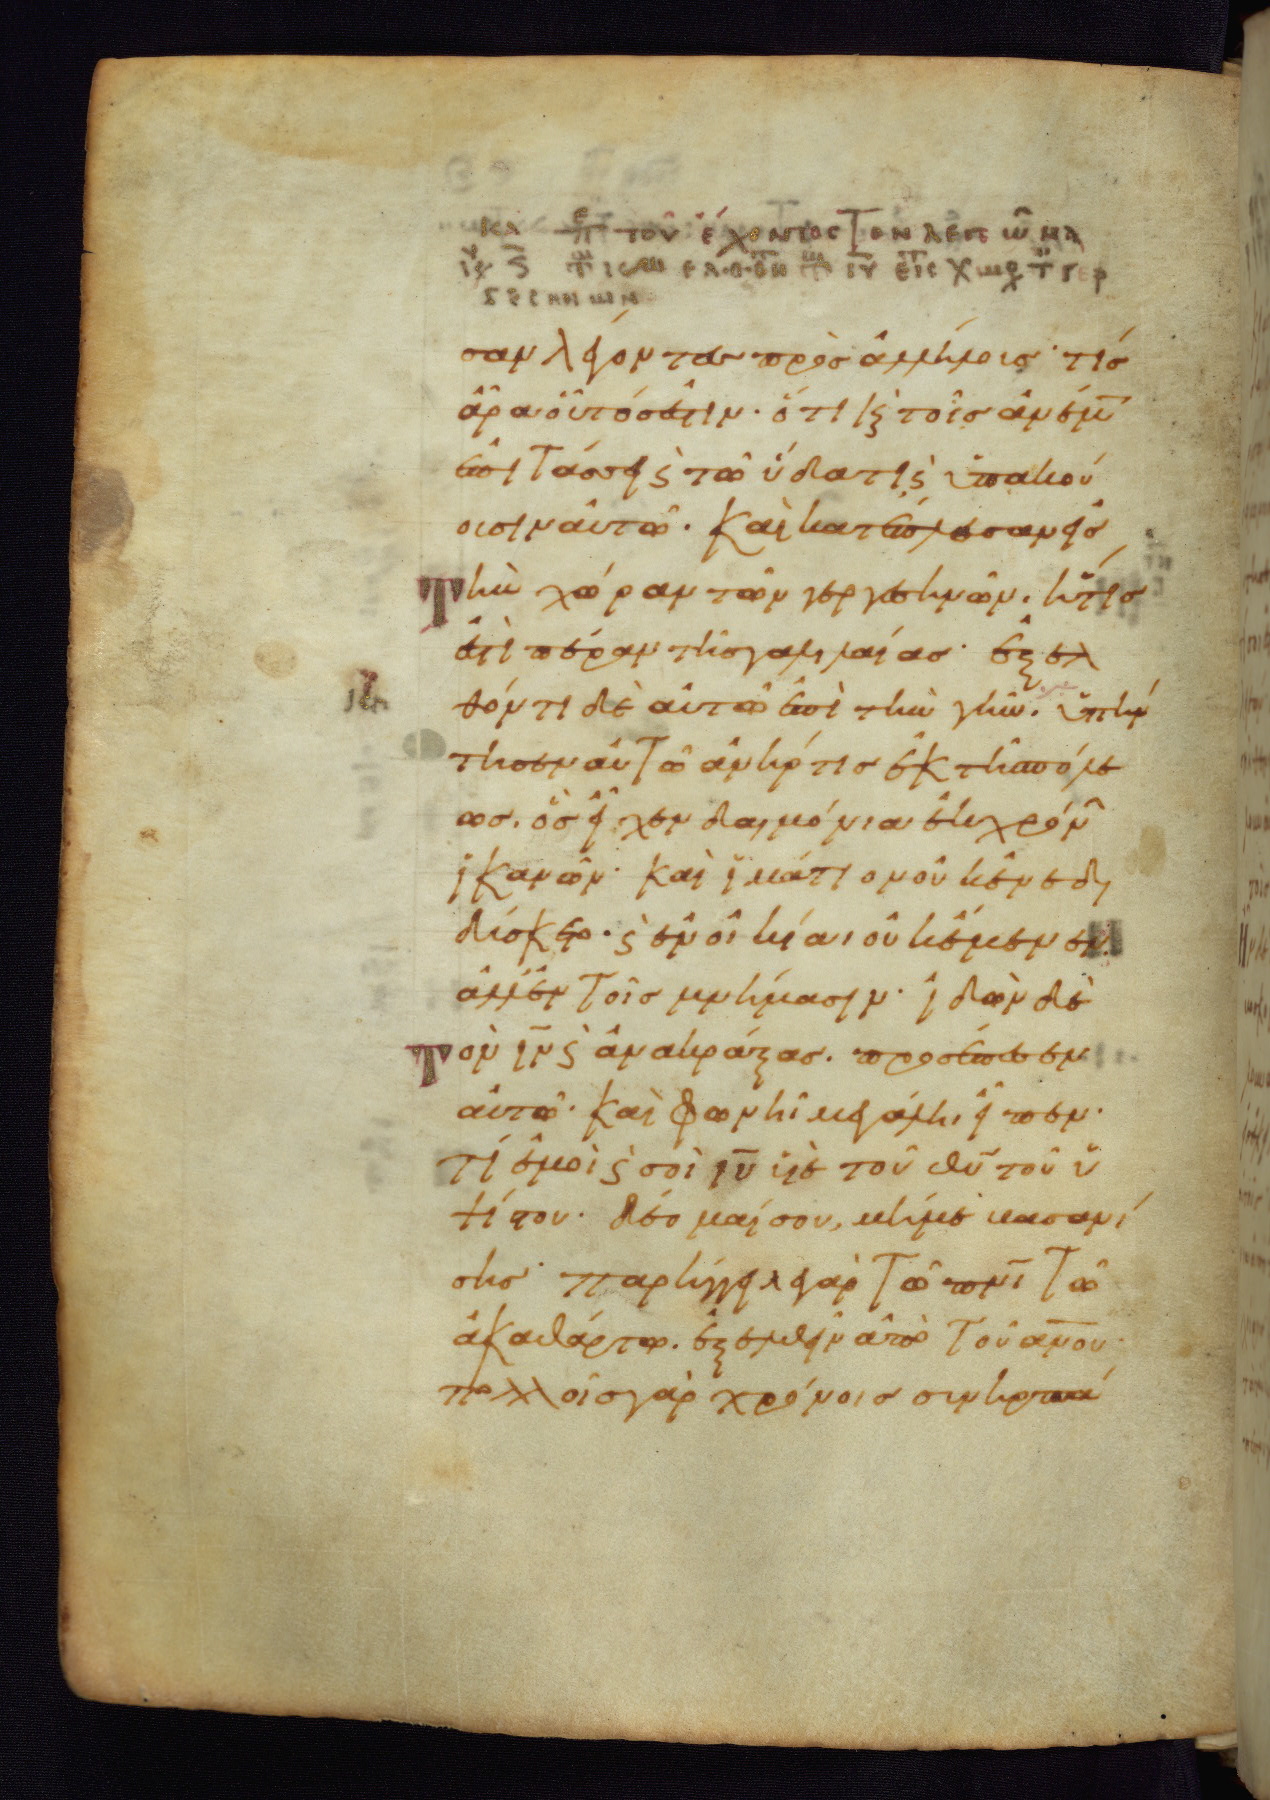 ΚΑ ΠΕ τοῦ ἔχοντος τὸν λεγεῶνα
σαν λέγοντες πρὸς ἀλλήλους· τίς
ἄρα οὗτός ἐστιν· ὅτι κ(αὶ) τοῖς ἀνέμ(οις)
ἐπιτάσσει κ(αὶ) τῶ ὕδατι κ(αὶ) ὑπακού
ουσιν αὐτῶ. Καὶ κατέπλευσαν εἰς
Τὴν χώραν τῶν γεργεσηνῶν. ἥτις
ἐστὶ πέραν τῆς γαλιλαίας· ἐξελ
θόντι δὲ αὐτῶ ἐπὶ τὴν γῆν. ὑπήν
τησεν αὐτῶ ἀνήρ τις ἐκ τῆς πόλε
ως. ὃς εἶχεν δαιμόνια ἐκ χρόν(ων)
ἱκανῶν· καὶ ἱμάτιον οὐκ ἐνεδι
δύσκετο. κ(αὶ) ἐν οἰκίαι οὐκ ἔμενεν
ἀλλ' ἐν τοῖς μνήμασιν· ἰδὼν δὲ
Τὸν ιν κ(αὶ) ἀνακράξας. προσέπεσεν
αὐτῶ· καὶ φωνῆ μεγάλη εἶπεν·
τί ἐμοὶ κ(αὶ) σοὶ ιυ υιὲ τοῦ θυ τοῦ ὑ
ψίστου· δέομαί σου, μή με βασανί
σης· παρήγγειλε γὰρ τῶ πνι τῶ
ἀκαθάρτω. ἐξελθεῖν ἀπὸ τοῦ ανου·
πολλοῖς γὰρ χρόνοις συνηρπά